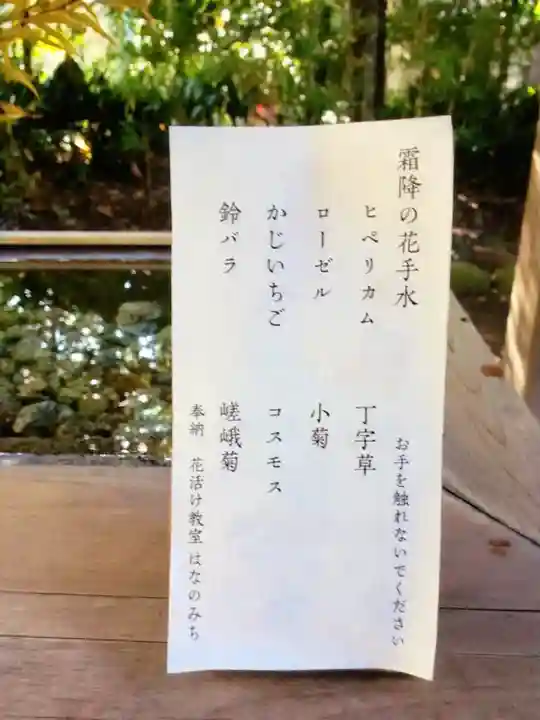 霜降の花手水
お手を触れないでください
ヒペリカム 丁字草
ローゼル 小菊
かじいちご コスモス
鈴バラ 嵯峨菊
奉納 花活け教室 はなのみち